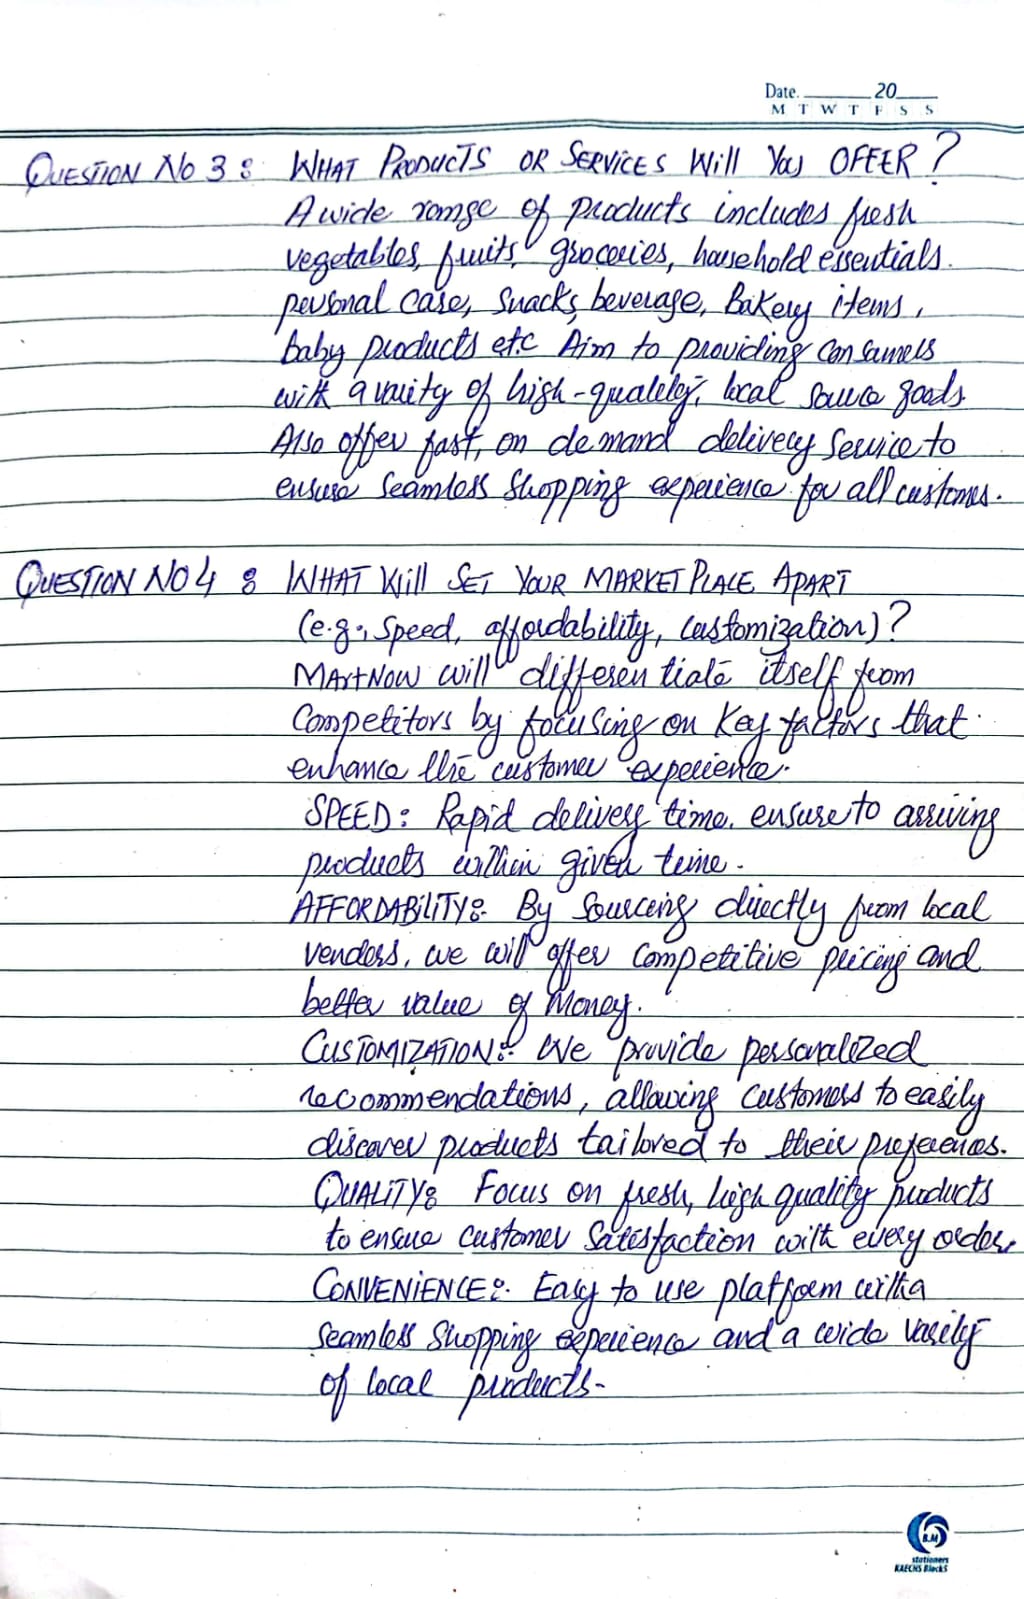 Date. ______ 20____
M T W T F S S
QUESTION NO 3 : WHAT PRODUCTS OR SERVICES Will You OFFER?
A wide range of products includes fresh
vegetables, fruits, groceries, household essentials.
personal care, snacks, beverage, Bakery items,
baby products etc Aim to providing consumers
with a vaiity of high-quality, local source goods.
Also offer fast, on demand delivery service to
ensure seamless shopping experience for all customes.
QUESTION NO 4 : WHAT Will SET YOUR MARKET PLACE APART
(e.g., speed, affordability, customization)?
MArtNOW will differentiate itself from
Competitors by focusing on Key factors that
enhance the customer experience.
SPEED: Rapid delivery time. ensure to arriving
products within given time.
AFFORDABILITY: By sourcing directly from local
venders, we will offer competitive pricing and
better value of Money.
CUSTOMIZATION: We provide personalized
recommendations, allowing customers to easily
discover products tailored to their preferences.
QUALITY: Focus on fresh, high quality products
to ensure customer satisfaction with every order.
CONVENIENCE: Easy to use platform with a
seamless shopping experience and a wide variety
of local products-
B.M
stationers
KAECHS Block5